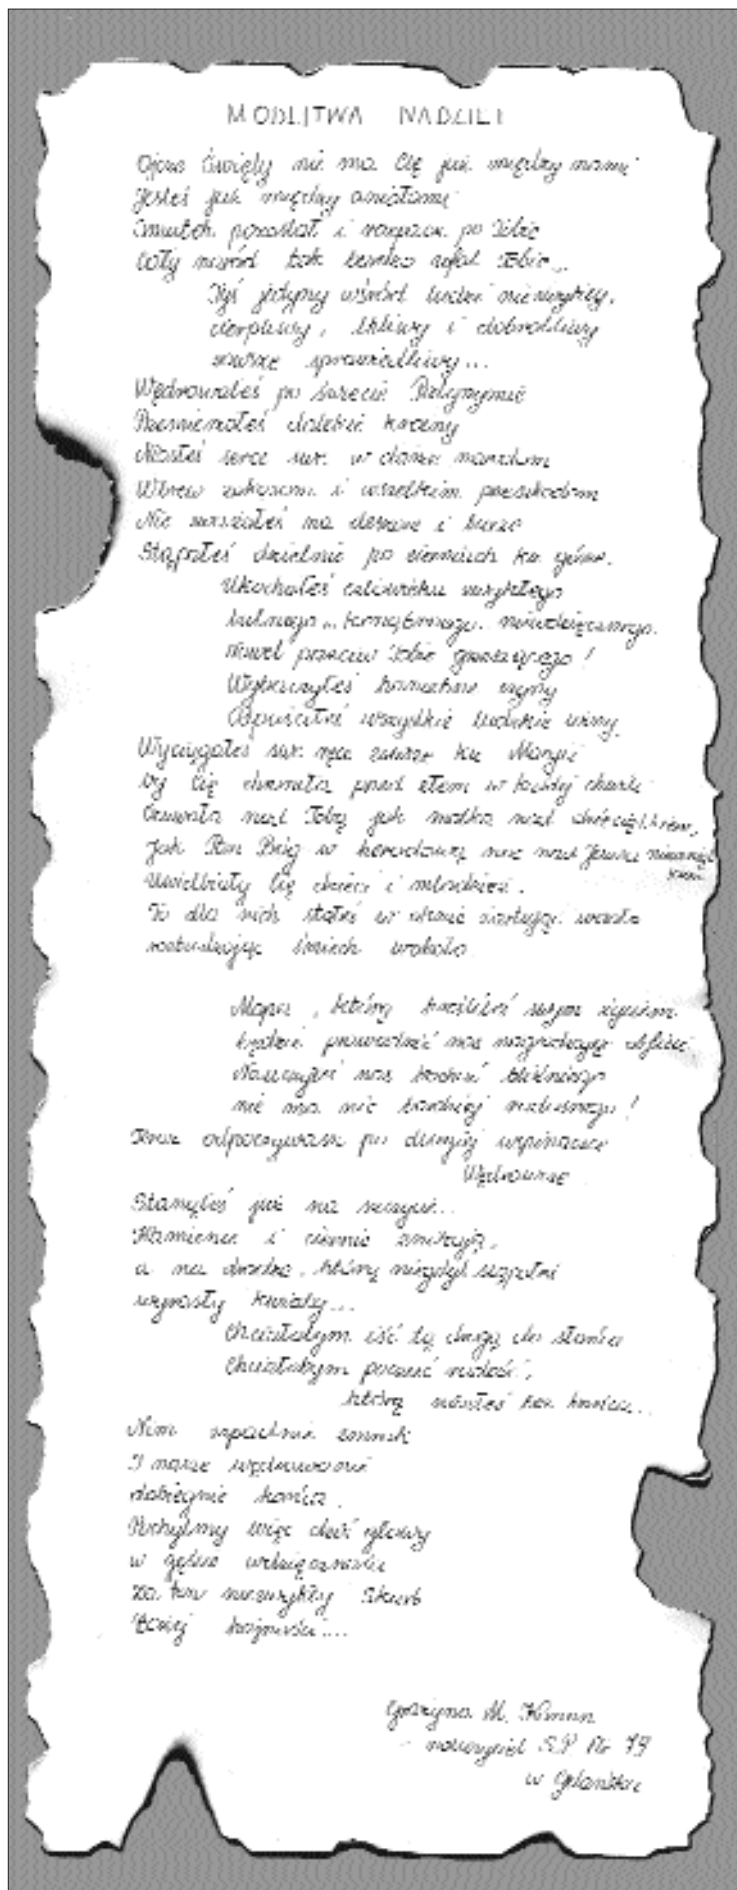 MODLITWA NADZIEI
Ojcze Święty nie ma Cię już między nami
Jesteś już między aniołami
Smutek pozostał i rozpacz po Tobie
Cały naród tak bardzo ufał Tobie...
Tyś jedyny wśród ludzi niezwykły,
cierpliwy, tkliwy i dobrotliwy
zawsze sprawiedliwy...
Wędrowałeś po świecie Pielgrzymie
Przemierzałeś dalekie krainy
Niosłeś serce swe w darze narodom
Wbrew zakazom i wszelkim przeszkodom
Nie zważałeś na deszcze i burze
Stąpałeś dzielnie po cierniach ku górze.
Ukochałeś człowieka zwykłego
niewdzięcznego.
Nawet przeciw Tobie grzeszącego!
Wybaczyłeś haniebne czyny
Odpuściłeś wszystkie ludzkie winy
Wyciągałeś swe ręce zawsze ku Maryi
by Cię chroniła przed złem w każdej chwili
Czuwała nad Tobą jak matka nad dzieciątkiem,
Jak Pan Bóg w noc nad Jezusa
Uwielbiały Cię dzieci i młodzież.
To dla nich stałeś w oknie żartując wesoło
rozbudzając śmiech wokoło
Mapa, którą kreśliłeś swym życiem
będzie prowadzić nas
Nauczyłeś nas kochać bliźniego
nie ma nic bardziej
Teraz odpoczywasz po długiej wspinaczce
Wędrowcze
Stanąłeś już na szczycie...
Kamienie i ciernie znikają,
a na drodze, którą niegdyś szedłeś
wyrosły kwiaty...
Chciałabym iść tą drogą do słońca
Chciałabym poczuć radość,
którą niosłeś bez końca...
Nim zapadnie zmrok
I nasze wędrowanie
dobiegnie końca
Pochylmy więc dziś głowy
w geście wdzięczności
za ten niezwykły skarb
Bożej hojności....
Grażyna M.
nauczyciel S.P. Nr 79
w Gdańsku